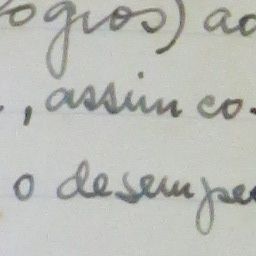 ogios) ao
, assim co-
o desempe